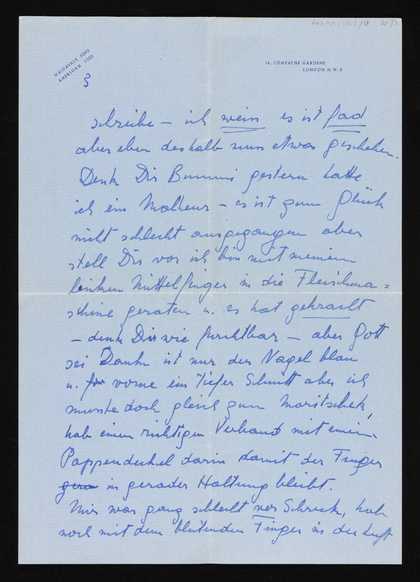 MAIDA VALE 1003
14, COMPAYNE GARDENS
LONDON N.W.6
3
schreibe – ich weiss es ist fad
aber eben deshalb muss etwas geschehen.
Denk Dir Bummi gestern hatte
ich ein Malheur – es ist zum Glück
nicht schlecht ausgegangen aber
stell Dir vor ich bin mit meinem
linken Mittelfinger in die Fleischma=
schine geraten u. es hat gekracht
– denk Dir wie furchtbar – aber Gott
sei Dank ist nur der Nagel blau
u. vorne ein tiefer Schnitt aber ich
musste doch gleich zum Maritschek,
hab einen richtigen Verband mit einem
Pappendeckel darin damit der Finger
in gerader Haltung bleibt.
Mir war ganz schlecht vor Schreck, hab
noch mit dem blutenden Finger in der Luft